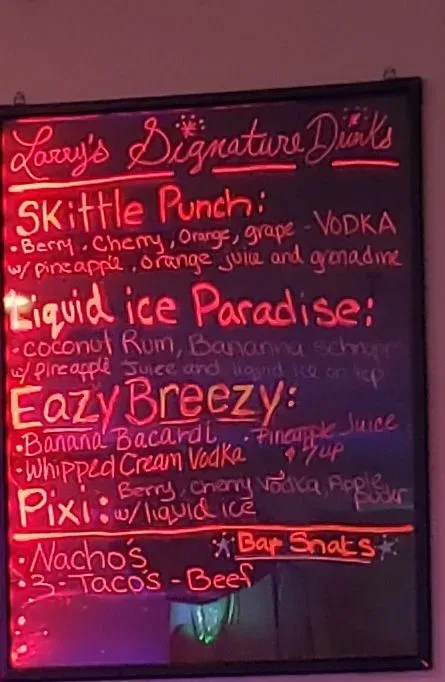 Larry's Signature Drinks
Skittle Punch:
• Berry, Cherry, Orange, grape - VODKA
w/ pineapple, orange juice and grenadine
Liquid ice Paradise:
• coconut Rum, Bananna schnapps
w/ pineapple Juice and liquid ice on top
Eazy Breezy:
• Banana Bacardi • Pineapple Juice
• Whipped Cream Vodka & 7up
Pixi: Berry, Cherry Vodka, Apple
w/ liquid ice
Bar Snaks
• Nacho's
• 3 - Taco's - Beef